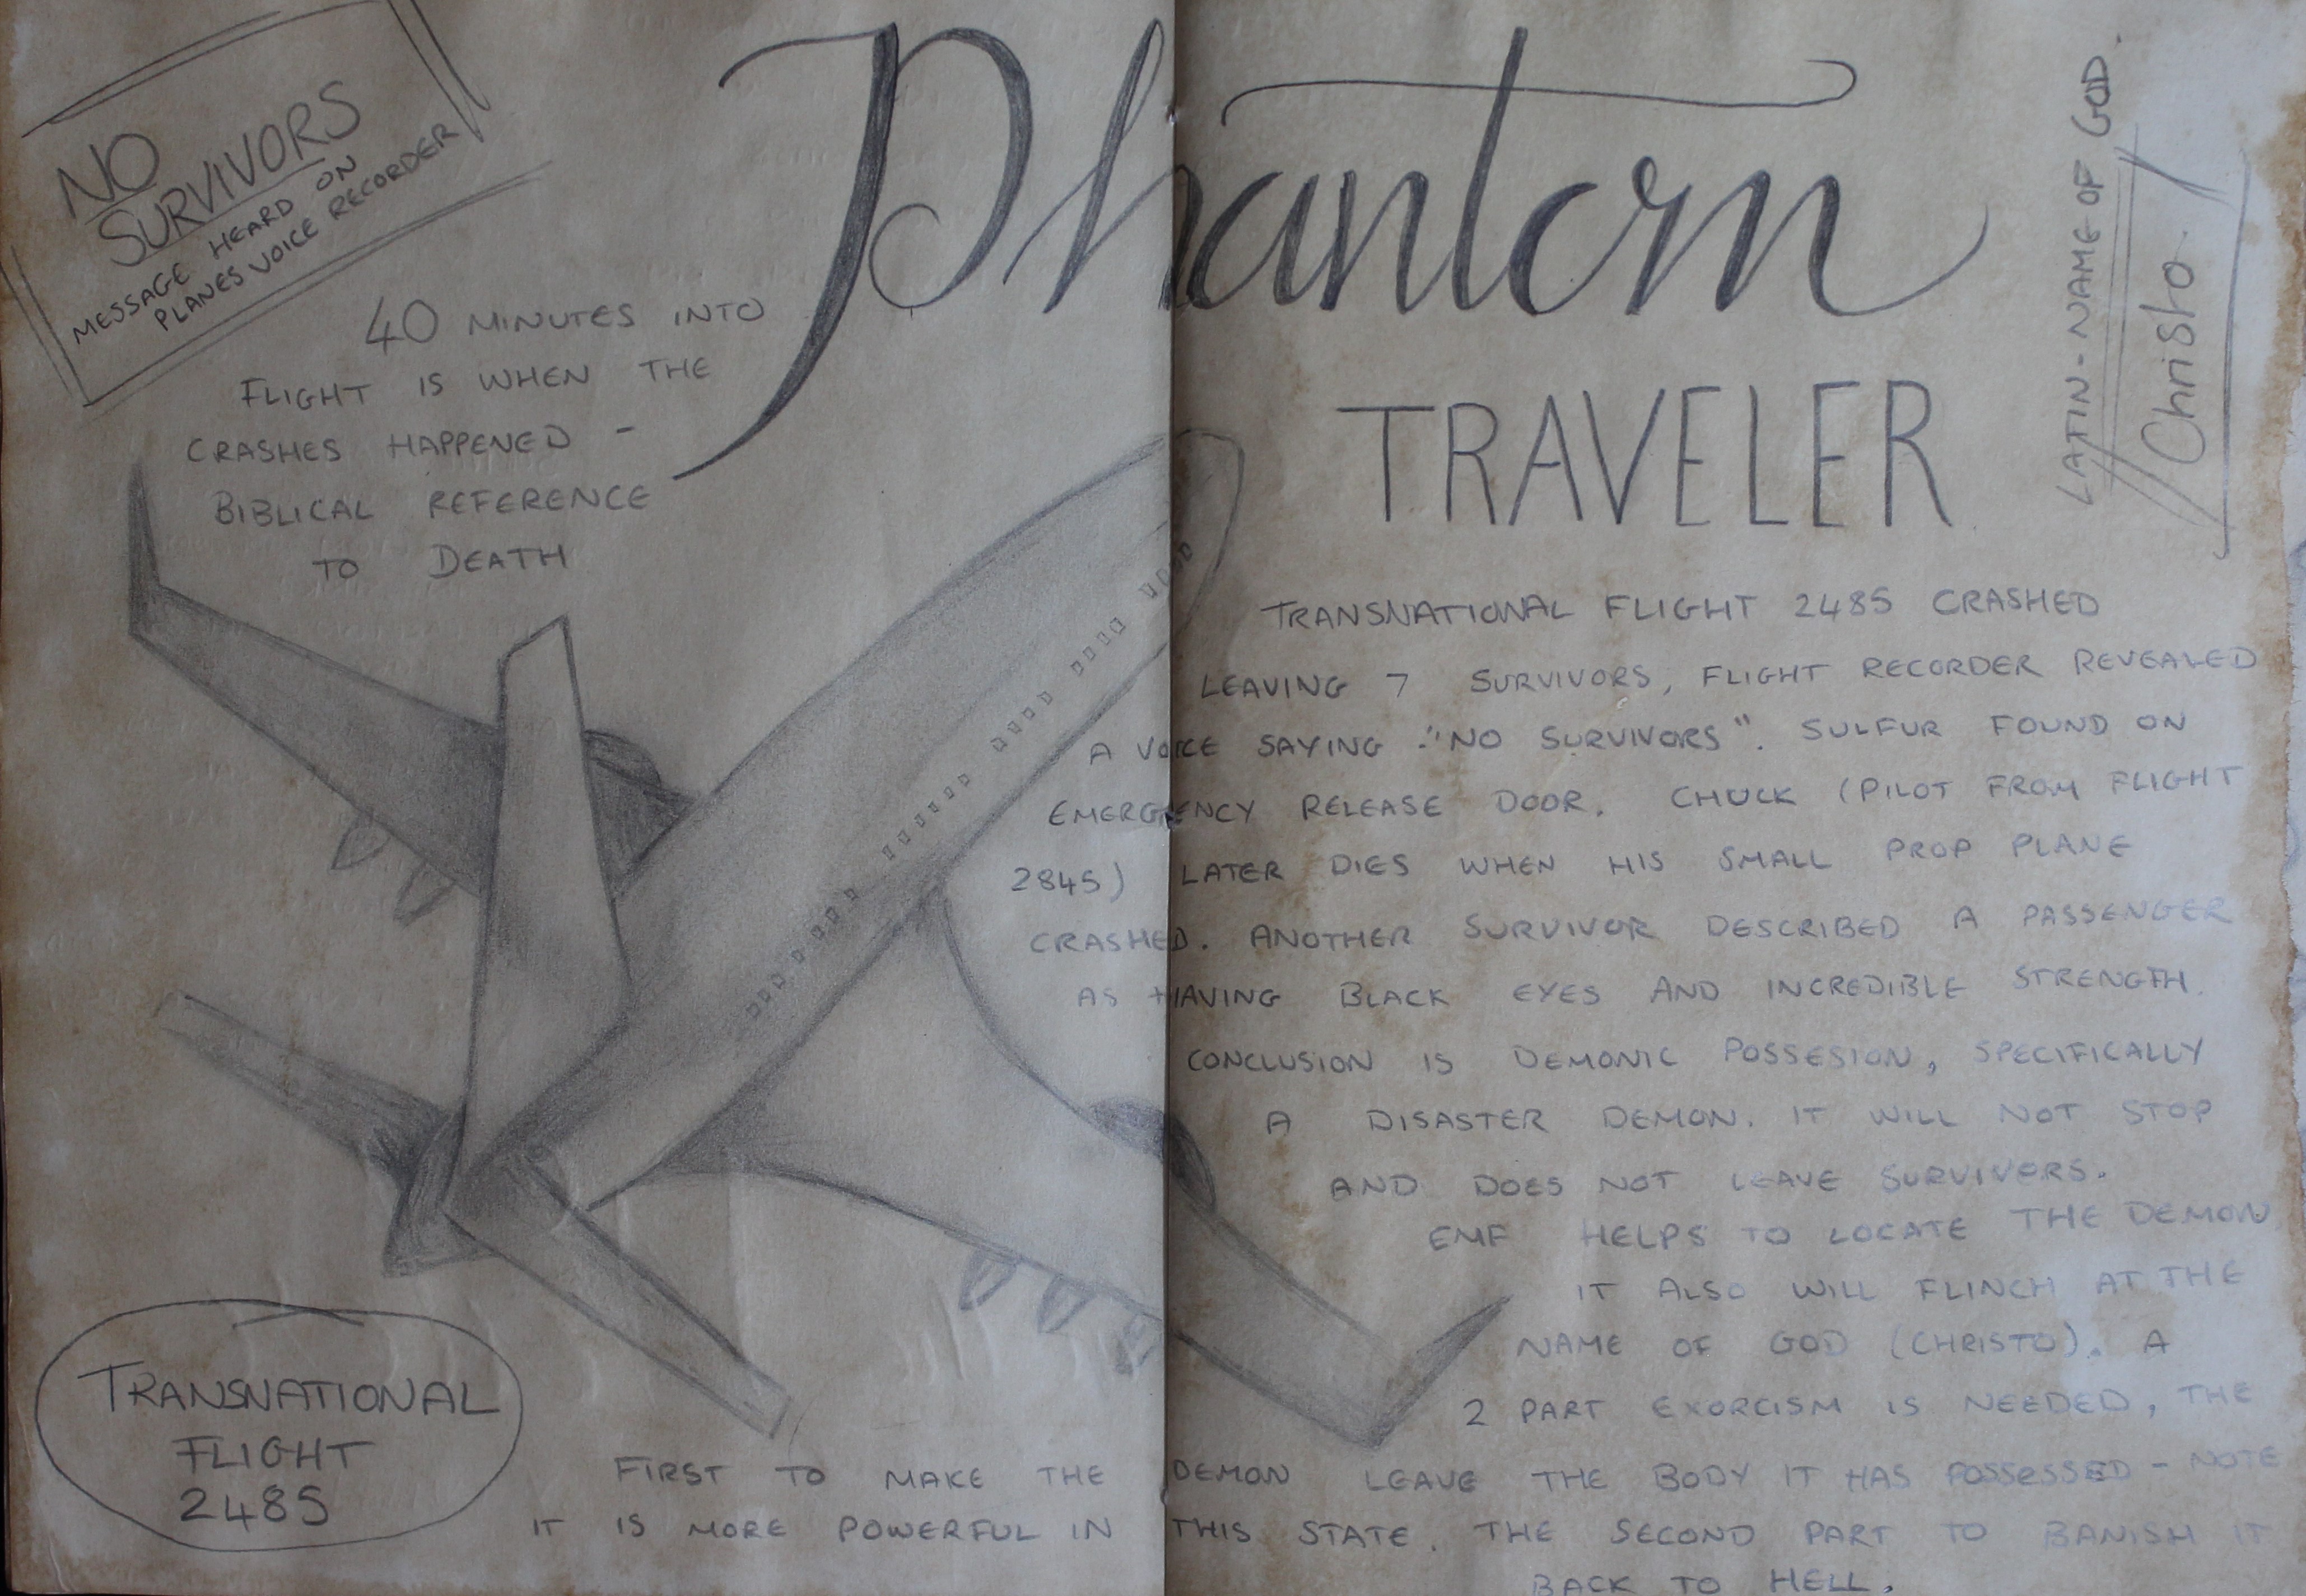 NO
SURVIVORS
MESSAGE HEARD ON
PLANES VOICE RECORDER
Phantom
TRAVELER
LATIN - NAME OF GOD.
Christo
40 MINUTES INTO
FLIGHT IS WHEN THE
CRASHES HAPPENED -
BIBLICAL REFERENCE
TO DEATH
TRANSNATIONAL FLIGHT 2485 CRASHED
LEAVING 7 SURVIVORS, FLIGHT RECORDER REVEALED
A VOICE SAYING :"NO SURVIVORS". SULFUR FOUND ON
EMERGENCY RELEASE DOOR. CHUCK (PILOT FROM FLIGHT
2845) LATER DIES WHEN HIS SMALL PROP PLANE
CRASHED. ANOTHER SURVIVOR DESCRIBED A PASSENGER
AS HAVING BLACK EYES AND INCREDIBLE STRENGTH.
CONCLUSION IS DEMONIC POSSESION, SPECIFICALLY
A DISASTER DEMON. IT WILL NOT STOP
AND DOES NOT LEAVE SURVIVORS.
EMF HELPS TO LOCATE THE DEMON
IT ALSO WILL FLINCH AT THE
NAME OF GOD (CHRISTO). A
2 PART EXORCISM IS NEEDED, THE
FIRST TO MAKE THE DEMON LEAVE THE BODY IT HAS POSSESSED - NOTE
IT IS MORE POWERFUL IN THIS STATE. THE SECOND PART TO BANISH IT
BACK TO HELL.
TRANSNATIONAL
FLIGHT
2485